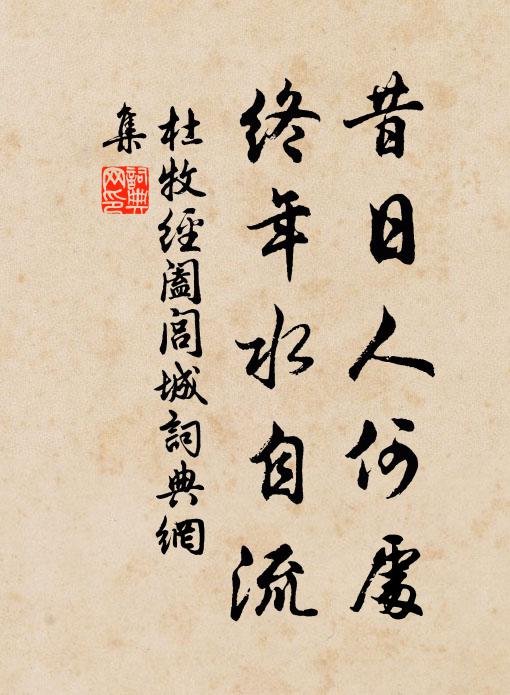 昔日人何處
終年水自流
杜牧經闔閭城詞典網
集
詞典
网印